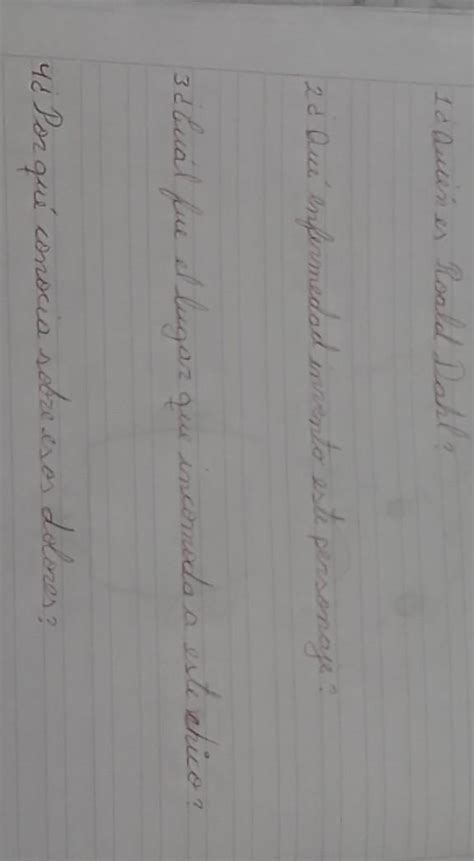 1¿Quién es Roald Dahl?
2¿Qué enfermedad invento este personaje?
3¿Cuál fue el lugar que incomoda a este chico?
4¿Por qué conocia sobre esos dolores?